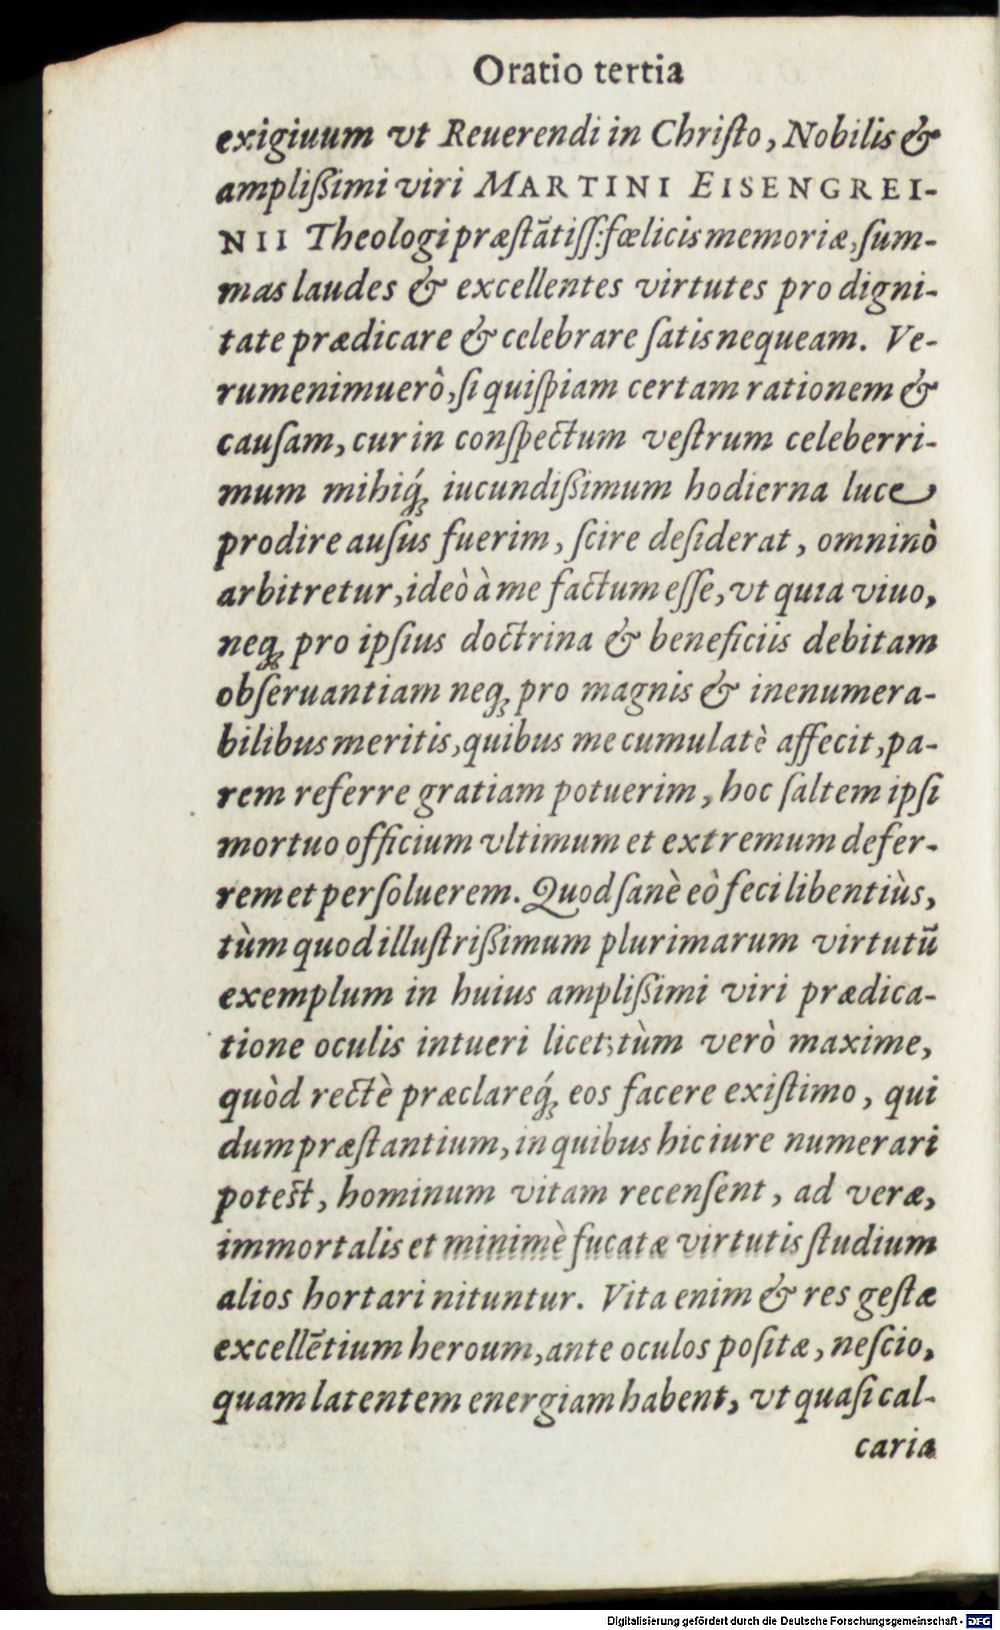 Oratio tertia
exigiuum vt Reuerendi in Chriſto, Nobilis &
ampliſsimi viri MARTINI EISENGREI-
NII Theologi præſtãtiſſ: fœlicis memoriæ, ſum-
mas laudes & excellentes virtutes pro digni-
tate prædicare & celebrare ſatis nequeam. Ve-
rumenimuerò, ſi quiſpiam certam rationem &
cauſam, cur in conſpectum veſtrum celeberri-
mum mihiq́ꝫ iucundiſsimum hodierna luce
prodire auſus fuerim, ſcire deſiderat, omninò
arbitretur, ideò à me factum eſſe, vt quia viuo,
neqꝫ pro ipſius doctrina & beneficiis debitam
obſeruantiam neqꝫ pro magnis & inenumera-
bilibus meritis, quibus me cumulatè affecit, pa-
rem referre gratiam potuerim, hoc ſaltem ipſi
mortuo officium vltimum et extremum defer-
rem et perſoluerem. Quod ſanè eò feci libentiùs,
tùm quod illuſtriſsimum plurimarum virtutū
exemplum in huius ampliſsimi viri prædica-
tione oculis intueri licet; tùm verò maxime,
quòd rectè præclareq́ꝫ eos facere exiſtimo, qui
dum præſtantium, in quibus hic iure numerari
poteſt, hominum vitam recenſent, ad veræ,
immortalis et minimè fucatæ virtutis ſtudium
alios hortari nituntur. Vita enim & res geſtæ
excellētium heroum, ante oculos poſitæ, neſcio,
quam latentem energiam habent, vt quaſi cal-
caria
Digitalisierung gefördert durch die Deutsche Forschungsgemeinschaft - DFG